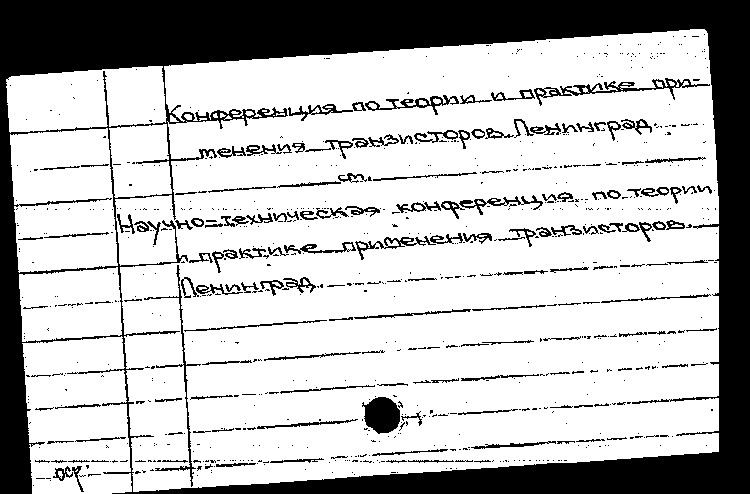 Конференция по теории и практике при-
менения транзисторов. Ленинград.
см.
Научно-техническая конференция по теории
и практике применения транзисторов.
Ленинград.